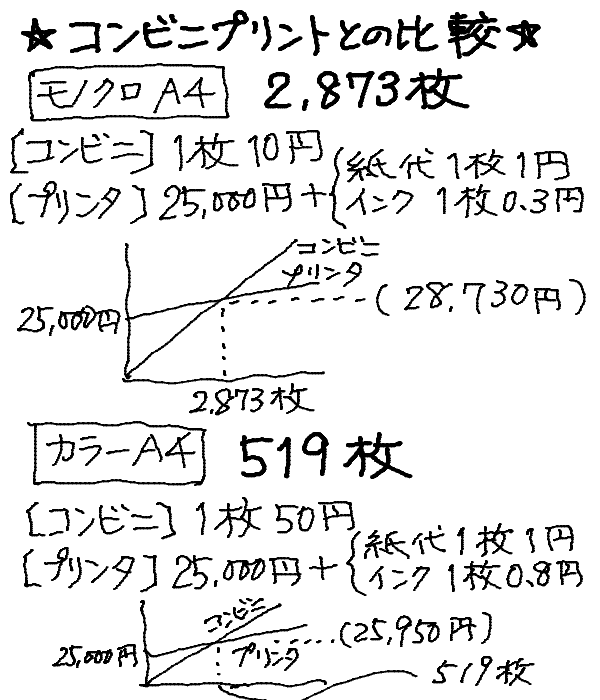 ★コンビニプリントとの比較★
モノクロA4 2,873枚
[コンビニ] 1枚10円
[プリンタ] 25,000円+{紙代1枚1円
インク 1枚0.3円
コンビニ
プリンタ
25,000円
(28,730円)
2,873枚
カラーA4 519枚
[コンビニ] 1枚50円
[プリンタ] 25,000円+{紙代1枚1円
インク 1枚0.8円
コンビニ
プリンタ
25,000円
(25,950円)
519枚